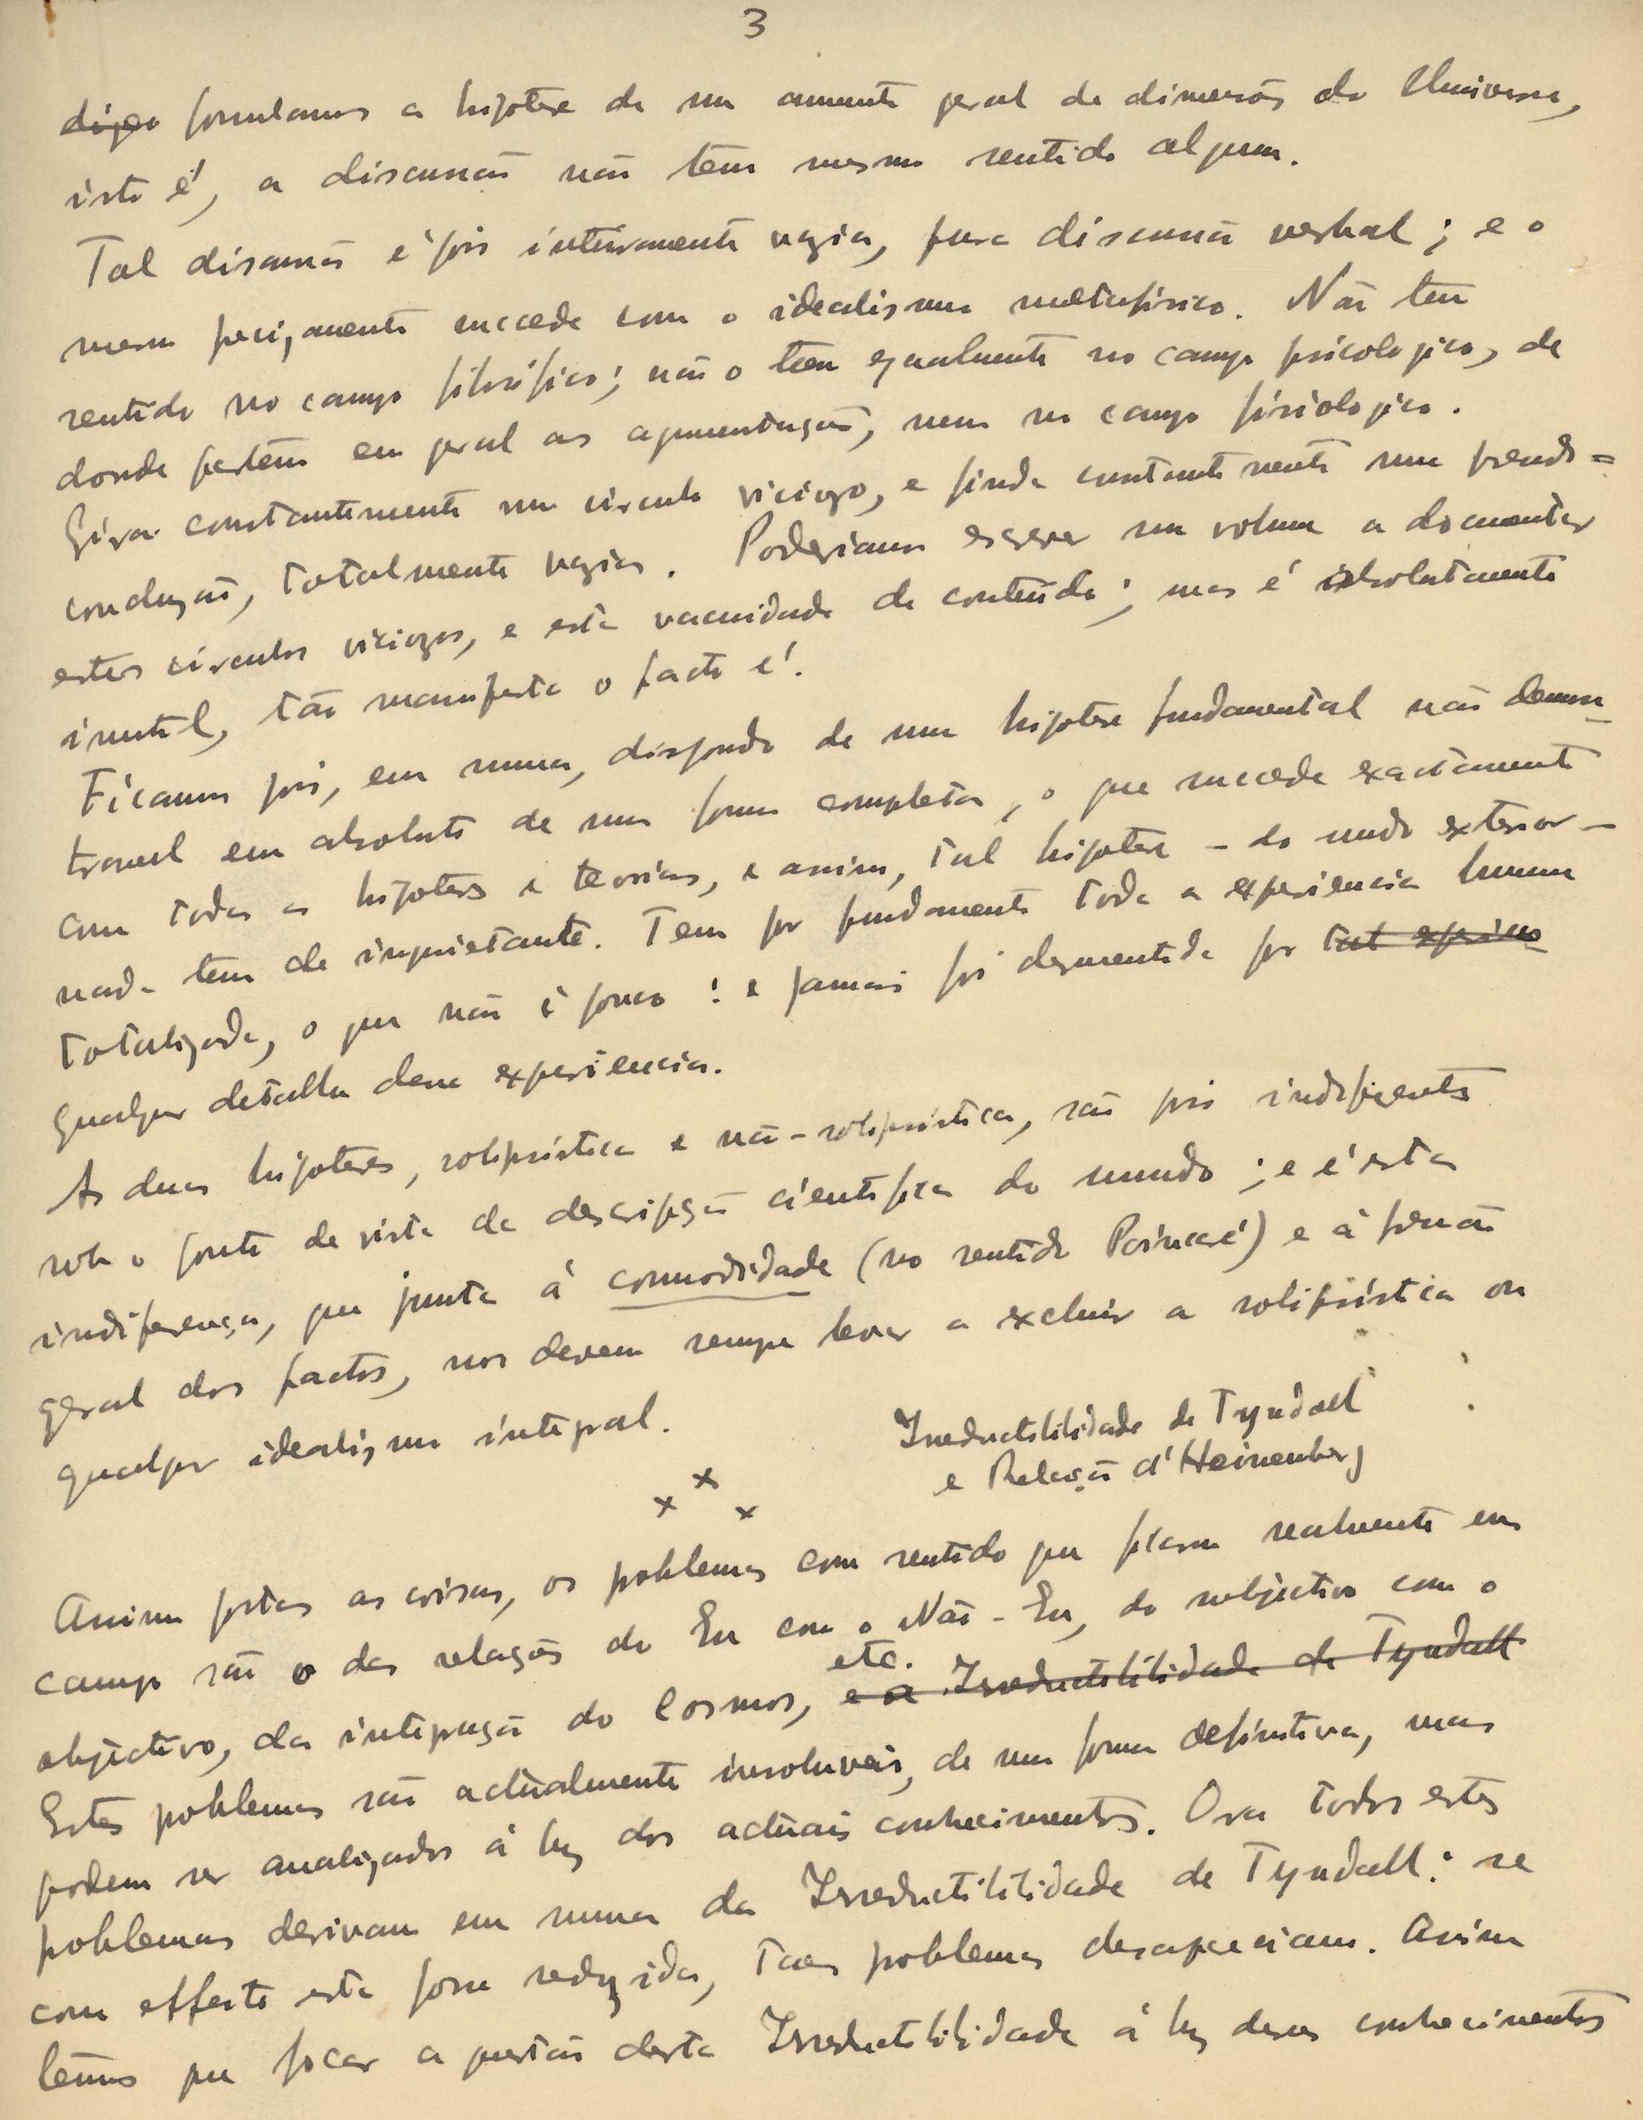 3
digo formulamos a hipotese de um aumento geral de dimensões do Universo,
isto é, a discussão não têm mesmo sentido algum.
Tal discussão é pois inteiramente vazia, pura discussão verbal; e o
mesmo precizamente succede com o idealismo metafisico. Não tem
sentido no campo filosófico; não o tem egualmente no campo psicologico, de
donde partem em geral as argumentações, nem no campo fisiologico.
Gira constantemente num circulo viciozo, e finda constantemente num pseudo=
conclusão, totalmente vazia. Poderiamos escrever um volume a documentar
estes circulos viciozos, e esta vacuidade de conteúdo; mas é absolutamente
inutil, tão manifesto o facto é.
Ficamos pois, em suma, dispondo de uma hipotese fundamental não demons
travel em absoluto de uma forma completa, o que succede exactamente
com todas as hipoteses e teorias, e assim, tal hipotese – do mundo exterior –
nada tem de inquietante. Tem por fundamento toda a experiencia humana
totalizada, o que não é pouco! e jamais foi desmentida por
qualquer detalhe dessa experiencia.
As duas hipoteses, solipsística e não-solipsística, são pois indiferentes
sob o ponto de vista da descripção cientifica do mundo; e é esta
indiferença, que junta á commodidade (no sentido Poincaré) e á pressão
geral dos factos, nos devem sempre levar a excluir a solipsística ou
qualquer idealismo integral.
Irreductibilidade de Tyndall
e Relação d'Heisenberg
x x x
Assim postas as coisas, os problemas com sentido que ficam realmente em
campo são o das relações do Eu com o Não-Eu, do subjectivo com o
objectivo, da integração do Cosmos, etc. e a Irreductibilidade de Tyndall
Estes problemas são actualmente insoluveis, de uma forma definitiva, mas
podem ser analizados á luz dos actuais conhecimentos. Ora todos estes
problemas derivam em suma da Irreductibilidade de Tyndall: se
com effeito esta fosse reduzida, taes problemas desapareciam. Assim
temos que focar a questão desta Irreductibilidade á luz desses conhecimentos